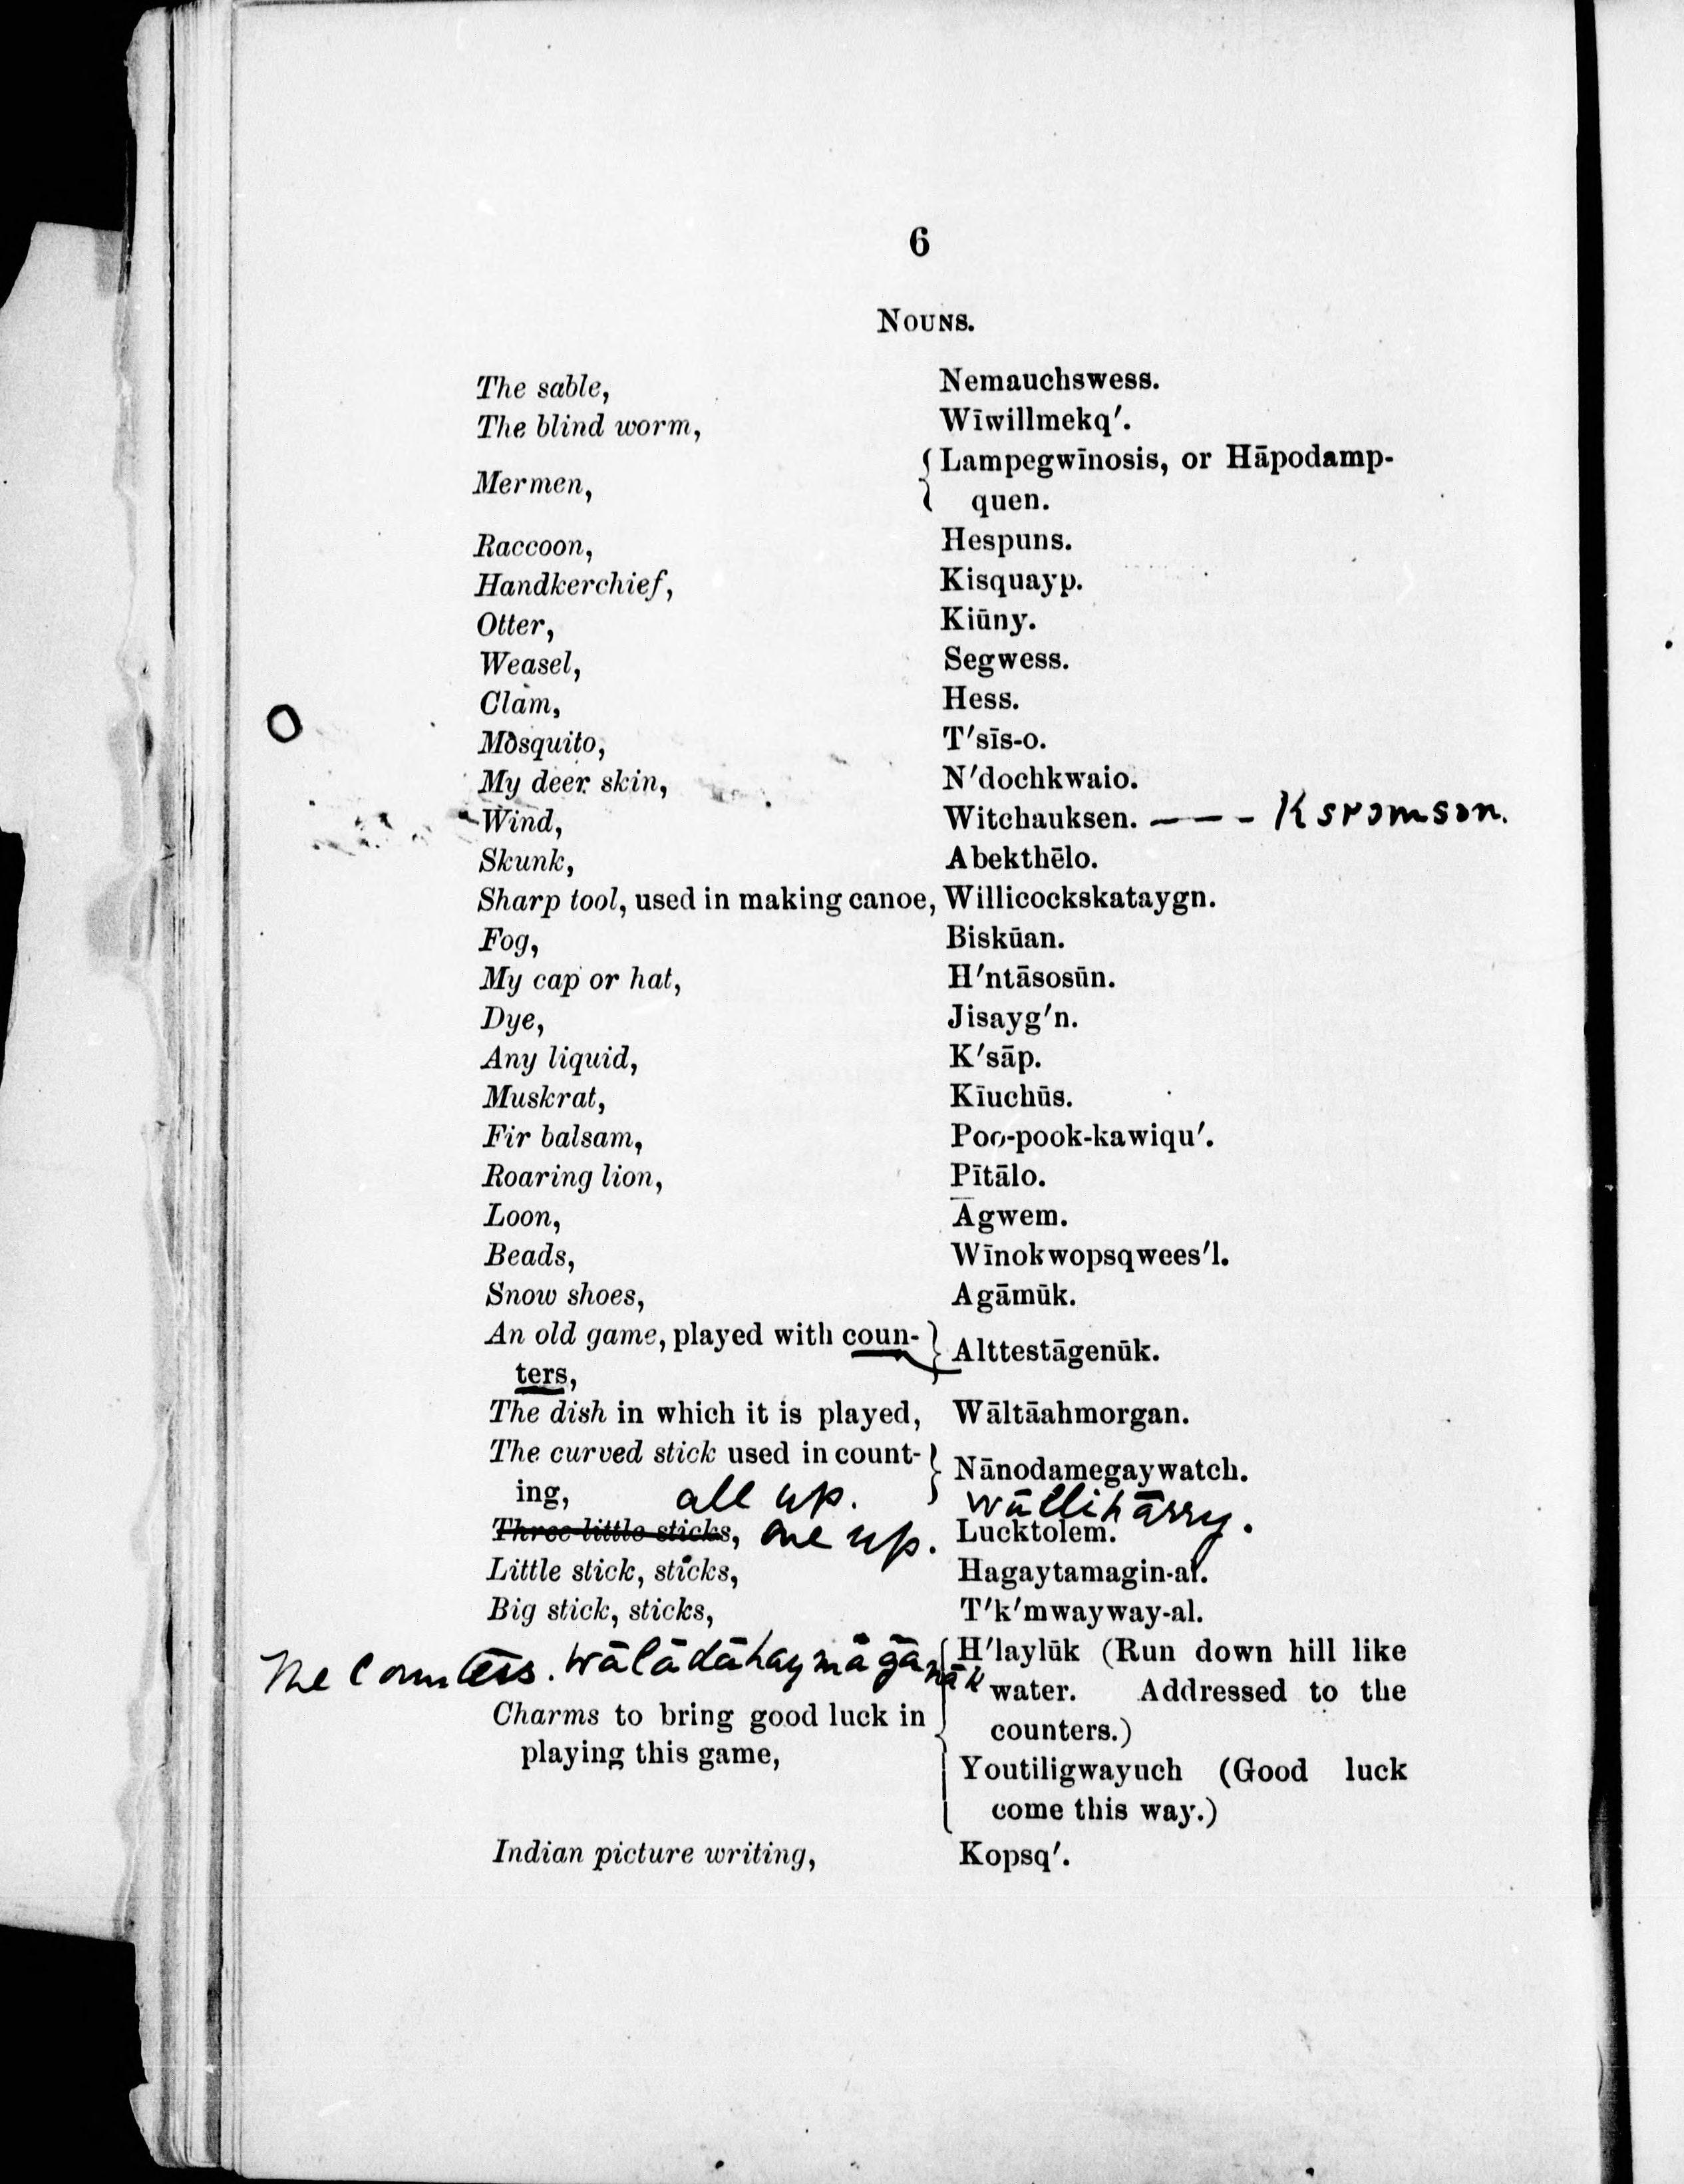 6
NOUNS.
The sable, Nemauchswess.
The blind worm, Wīwillmekq′.
Mermen, { Lampegwīnosis, or Hāpodamp-
quen.
Raccoon, Hespuns.
Handkerchief, Kisquayp.
Otter, Kiūny.
Weasel, Segwess.
Clam, Hess.
Mosquito, T′sīs-o.
My deer skin, N′dochkwaio.
Wind, Witchauksen. — — -
Skunk, Abekthēlo.
Sharp tool, used in making canoe, Willicockskataygn.
Fog, Biskūan.
My cap or hat, H′ntāsosūn.
Dye, Jisayg′n.
Any liquid, K′sāp.
Muskrat, Kīuchūs.
Fir balsam, Poo-pook-kawiqu′.
Roaring lion, Pītālo.
Loon, Āgwem.
Beads, Wīnokwopsqwees′l.
Snow shoes, Agāmūk.
An old game, played with coun- } Alttestāgenūk.
ters,
The dish in which it is played, Wāltāahmorgan.
The curved stick used in count- } Nānodamegaywatch.
ing, all up.
Three little sticks, one up. Lucktolem.
Little stick, sticks, Hagaytamagin-al.
Big stick, sticks, T′k′mwayway-al.
The Counters. { H′laylūk (Run down hill like
water. Addressed to the
Charms to bring good luck in counters.)
playing this game, Youtiligwayuch (Good luck
come this way.)
Indian picture writing, Kopsq′.